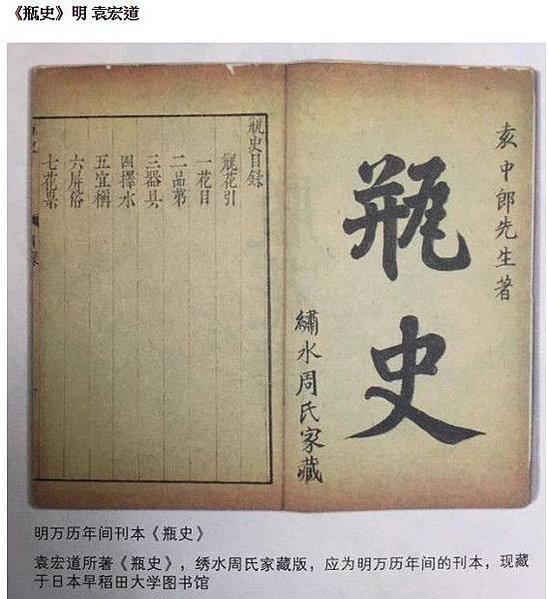 《瓶史》明 袁宏道
袁中郎先生著
瓶史
繡水周氏家藏
瓶史目錄
瓶花引
一花目
二品第
三器具
四擇水
五宜稱
六屏俗
七花祟
明万历年间刊本《瓶史》
袁宏道所著《瓶史》，绣水周氏家藏版，应为明万历年间的刊本，现藏
于日本早稻田大学图书馆